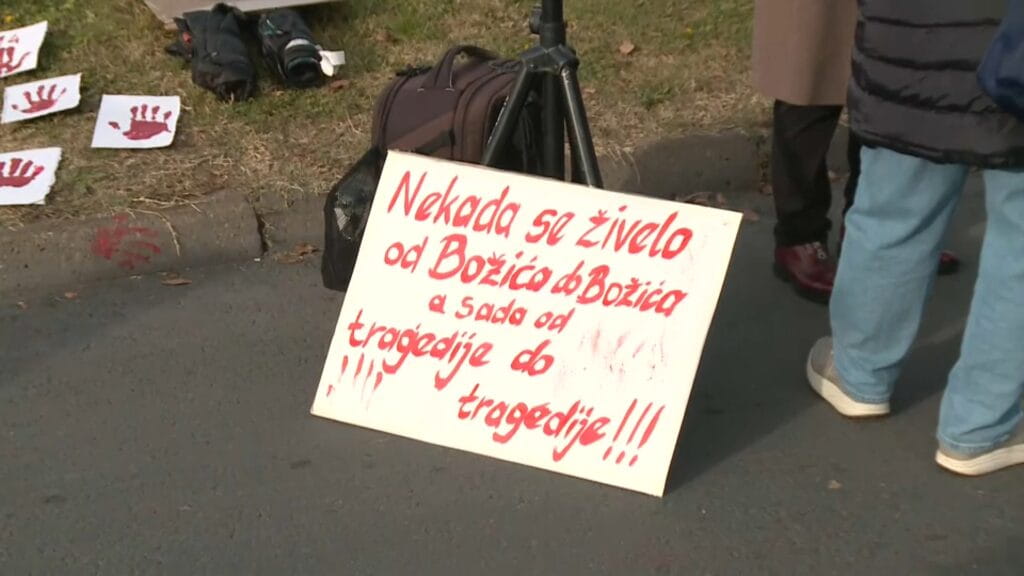 Nekada se živelo
od Božića do Božića
a sada od
tragedije do
!!!! tragedije!!!